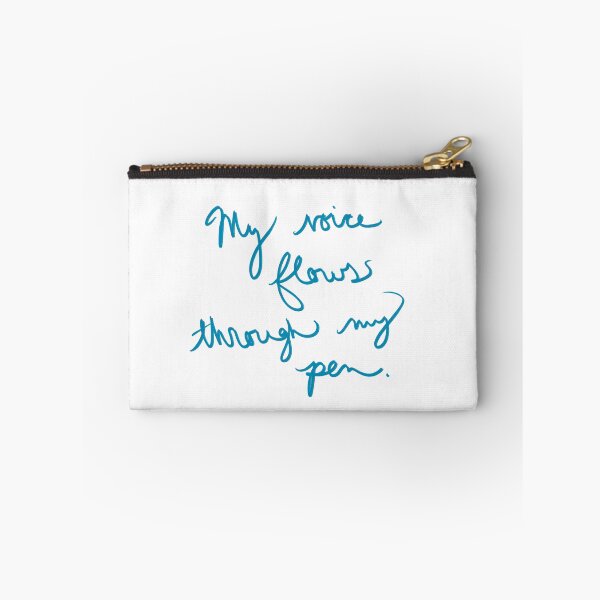 My voice
flows
through my
pen.